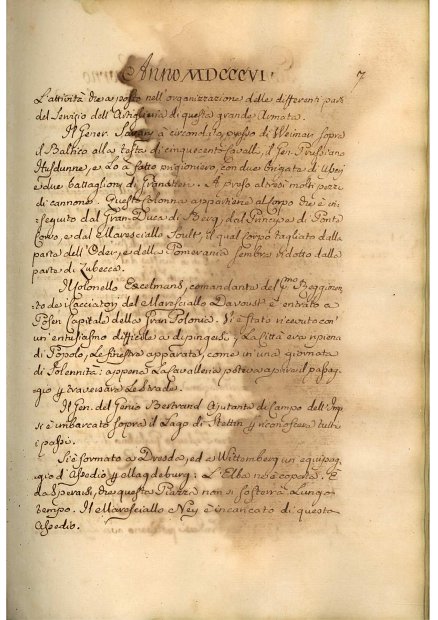 Anno MDCCCVI. 7
L'attività che a posto nell'organizzazione delle differenti parti
del Servizio dell'Artiglieria di questa grande Armata.
Il Gener. Savary à circondato, presso di Weimar, sopra
il Baltico alla testa di cinquecento cavalli, il Gen. Prussiano
Husdunne, e Lo à fatto prigioniero, con due brigate di Usseri
e due battaglioni di Granatieri. A preso altresì molti pezzi
di cannone. Questa colonna appartiene al corpo che è in-
seguito dal Gran Duca di Berg, dal Principe di Ponte
Corvo, e dal Maresciallo Soult, il qual corpo tagliato dalla
parte dell'Oder, e della Pomerania sembra ridotto dalla
parte di Lubecca.
Il Colonello Excelmans, comandante del pmo Reggimen-
to de' Cacciatori del Maresciallo Davoust è entrato a
Posen Capitale della Gran Polonia. Vi è stato ricevuto con
un'entusiasmo difficile a dipingersi; La Città era ripiena
di Popolo, Le finestre apparate, come in una giornata
di Solennità: appena La Cavalleria poteva aprirsi il passag-
gio p traversare Le Strade.
Il Gen. del Genio Bertrand Ajutante di Campo dell'Imp.
si è imbarcato sopra il Lago di Stettin p riconoscere tutti
i passi.
Si è formato a Dresda, ed a Wittemberg un equipag-
gio d'Assedio p Magdeburg: L'Elba ne è coperta. È
da sperarsi, che questa Piazza non si sosterrà Lungo
tempo. Il Maresciallo Ney è incaricato di questo
Assedio.